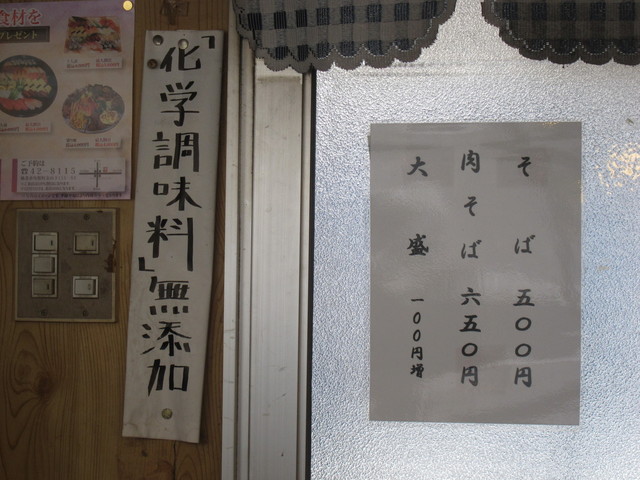 そば 五〇〇円
肉そば 六五〇円
大盛 一〇〇円増
「化学調味料」無添加
食材を
プレゼント
ご予約は
42-0115